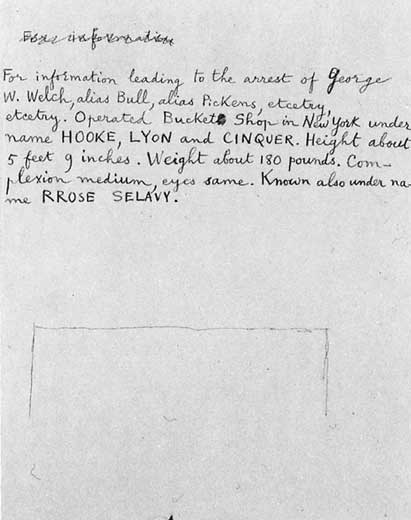 For information
For information leading to the arrest of George
W. Welch, alias Bull, alias Pickens, etcetry,
etcetry. Operated Bucket Shop in New York under
name HOOKE, LYON and CINQUER. Height about
5 feet 9 inches. Weight about 180 pounds. Com-
plexion medium, eyes same. Known also under na-
me RROSE SELAVY.